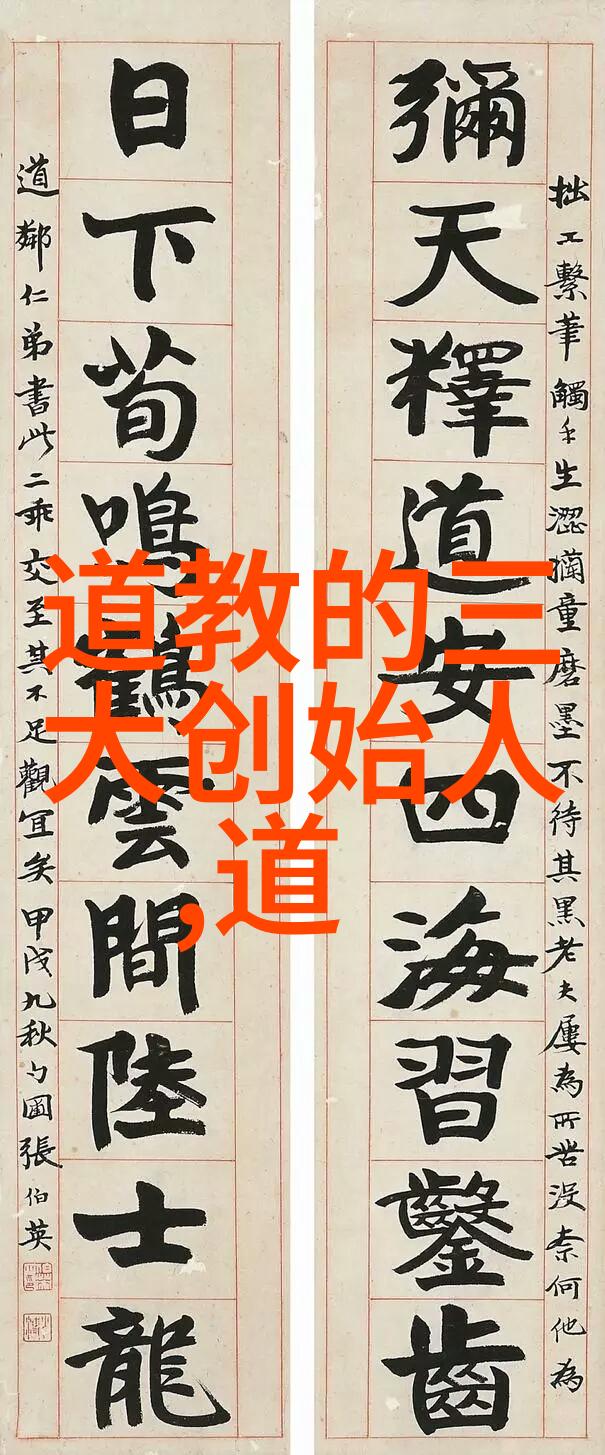 拙工繫筆觸手生澀童磨墨不待其黑老夫屢為所苦沒柰何他為
彌天釋道安四海習鑿齒
日下荀鳴鶴雲間陸士龍
道鄰仁弟書此二乖交至其不足觀宜矣甲戌九秋勺圃張伯英
道教的三
大创始人
,道